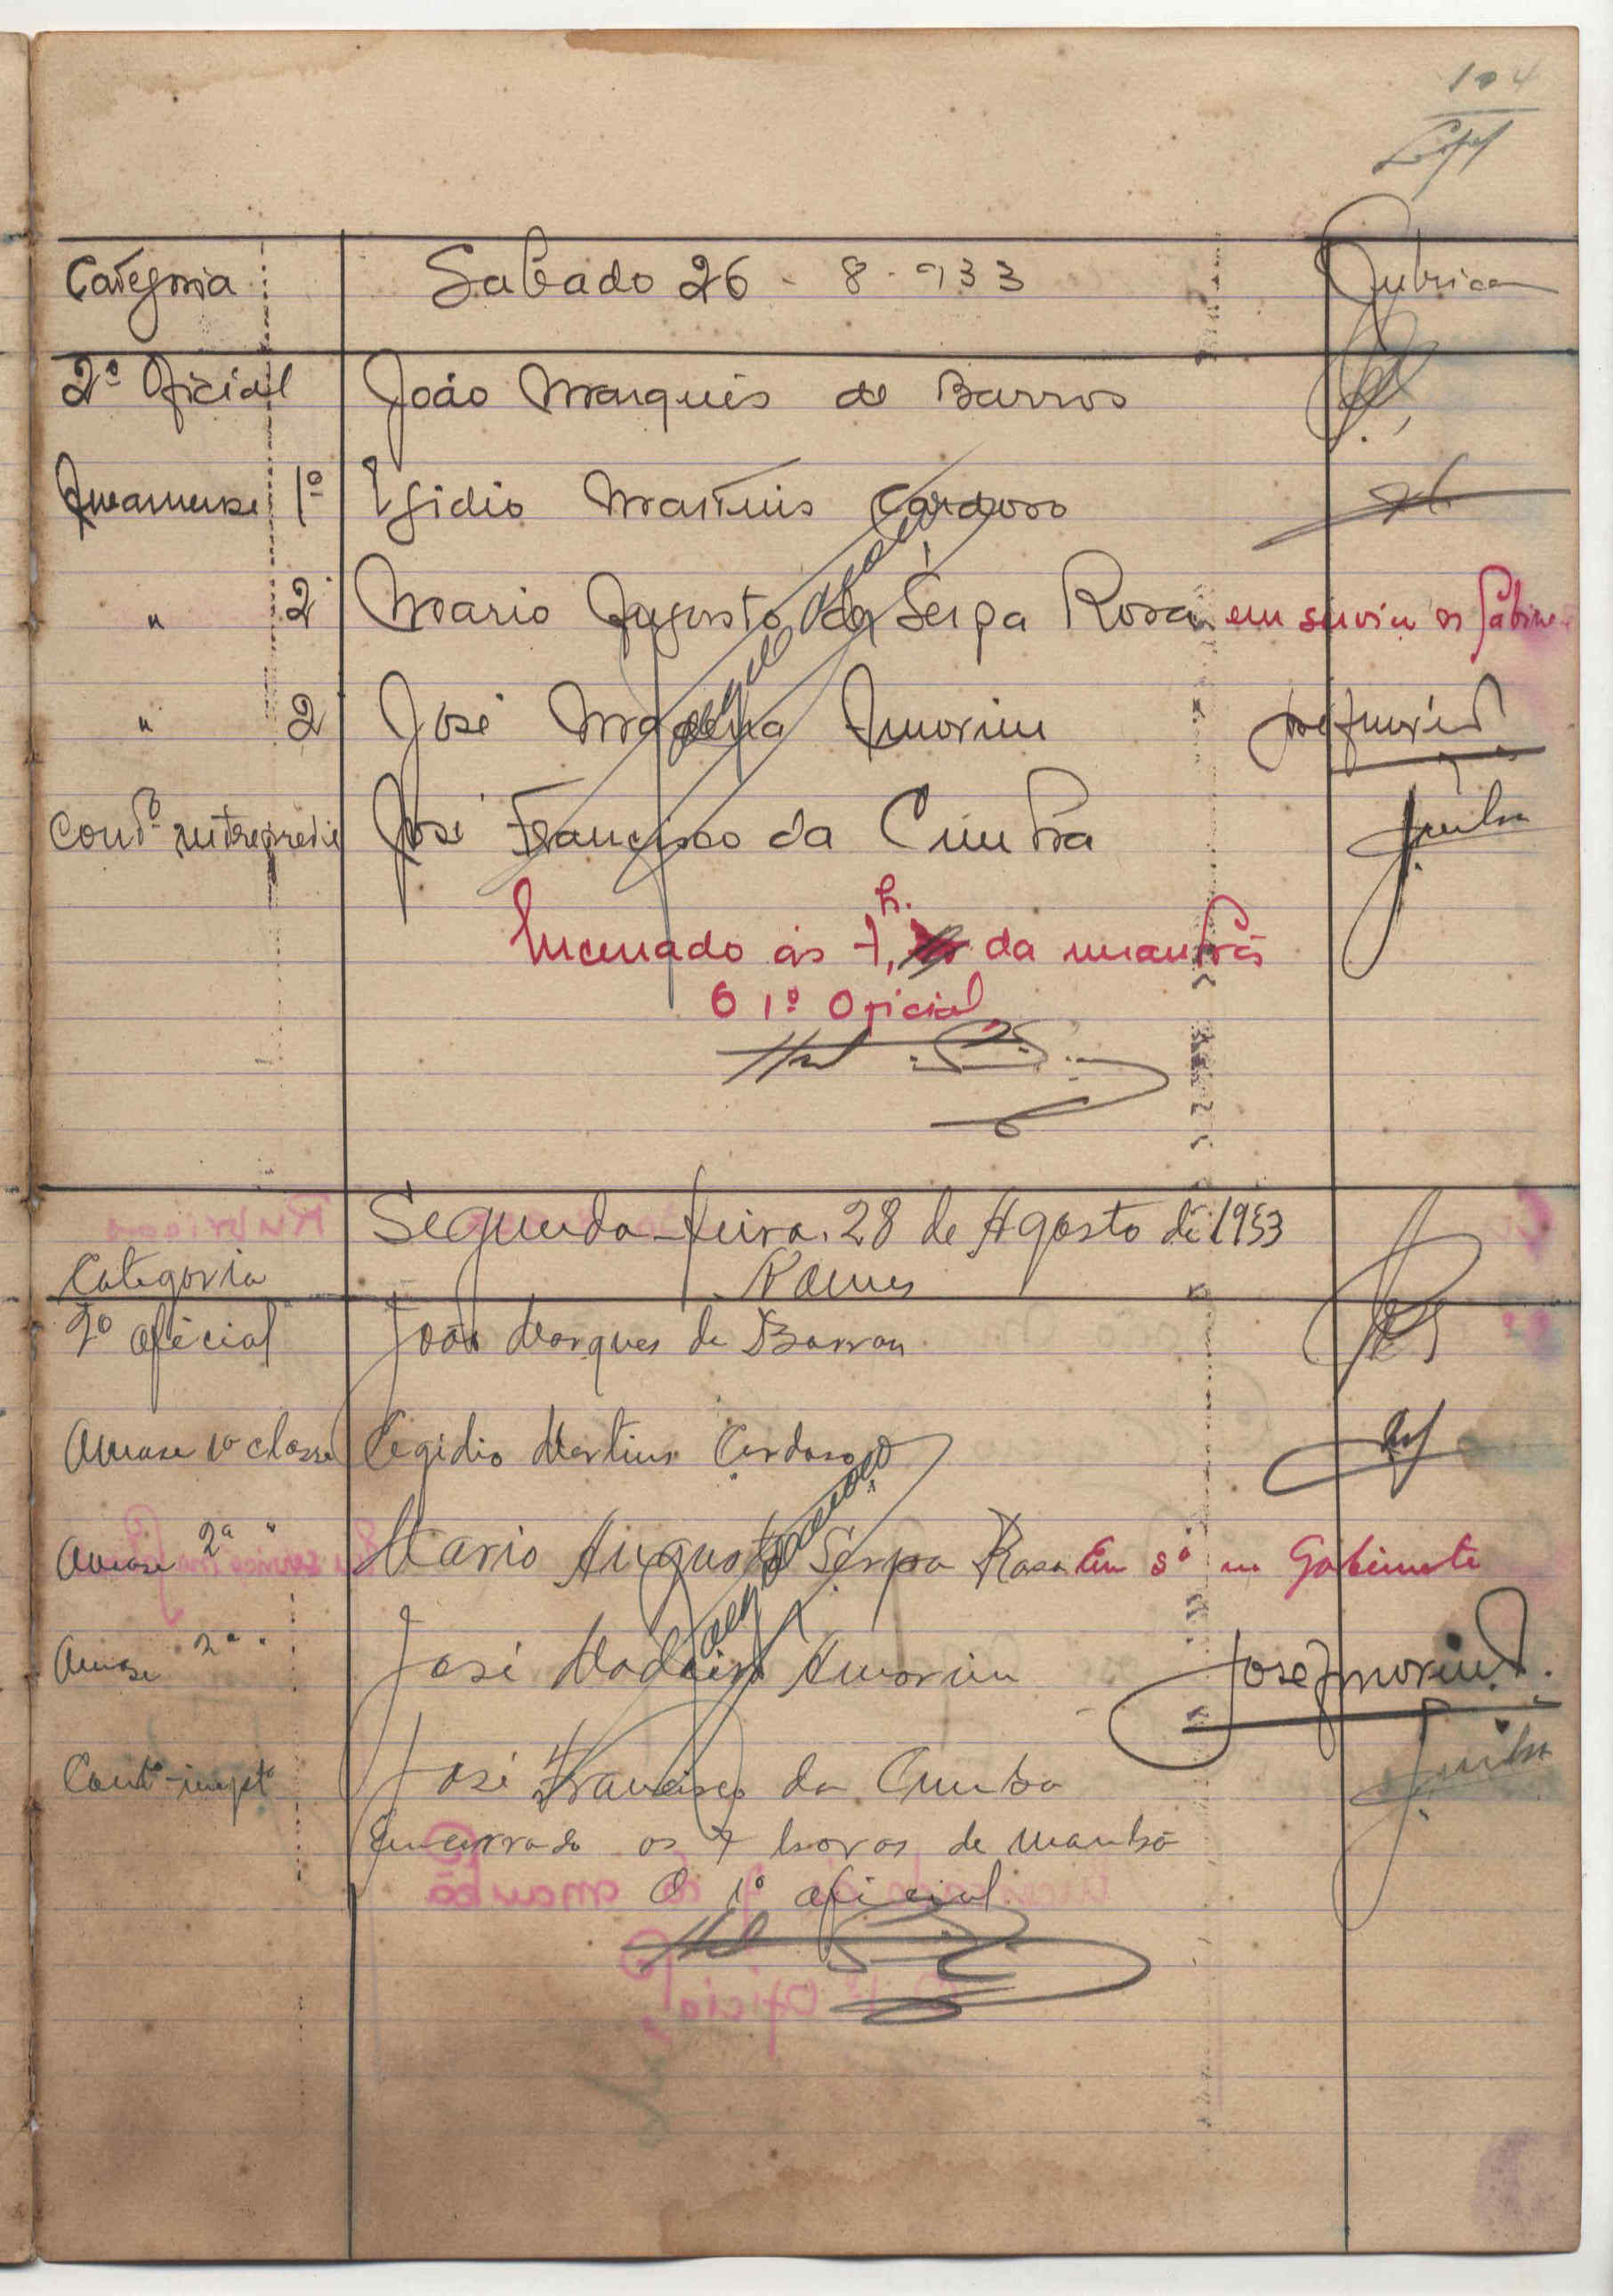 104
Categoria Sabado 26 - 8 - 933 Rubrica
2º Oficial João Marques de Barros
Amanuense 1º Egidio Martins Cardoso
" 2 Mario Augusto da Serpa Rosa em serviço
" 2 José Madeira Amorim JoséAmorim
Contº José Francisco da Cunha Cunha
Encerrado ás 7, h. da manhãs
O 1º Oficial,
Segunda-feira. 28 de Agosto de 1933
Categoria Nomes
2º oficial João Marques de Barros
Amase 1ª classe Cegidio Martins Cardoso
Amase 2ª " Mario Augusto Serpa Rosa Em sº no Gabinete
Amase 2ª " José Madeira Amorim JoséAmorim
Contº-inptº José Francisco da Cunha Cunha
Encerrado as 7 horas de manhã
O 1º oficial